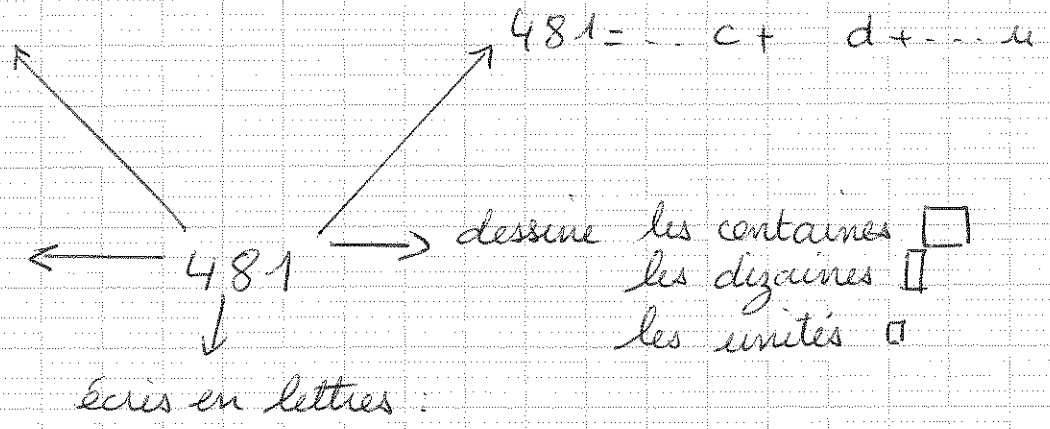 481 = ... c + d + ... u
dessine les centaines
481
les dizaines
les unités
écris en lettres :